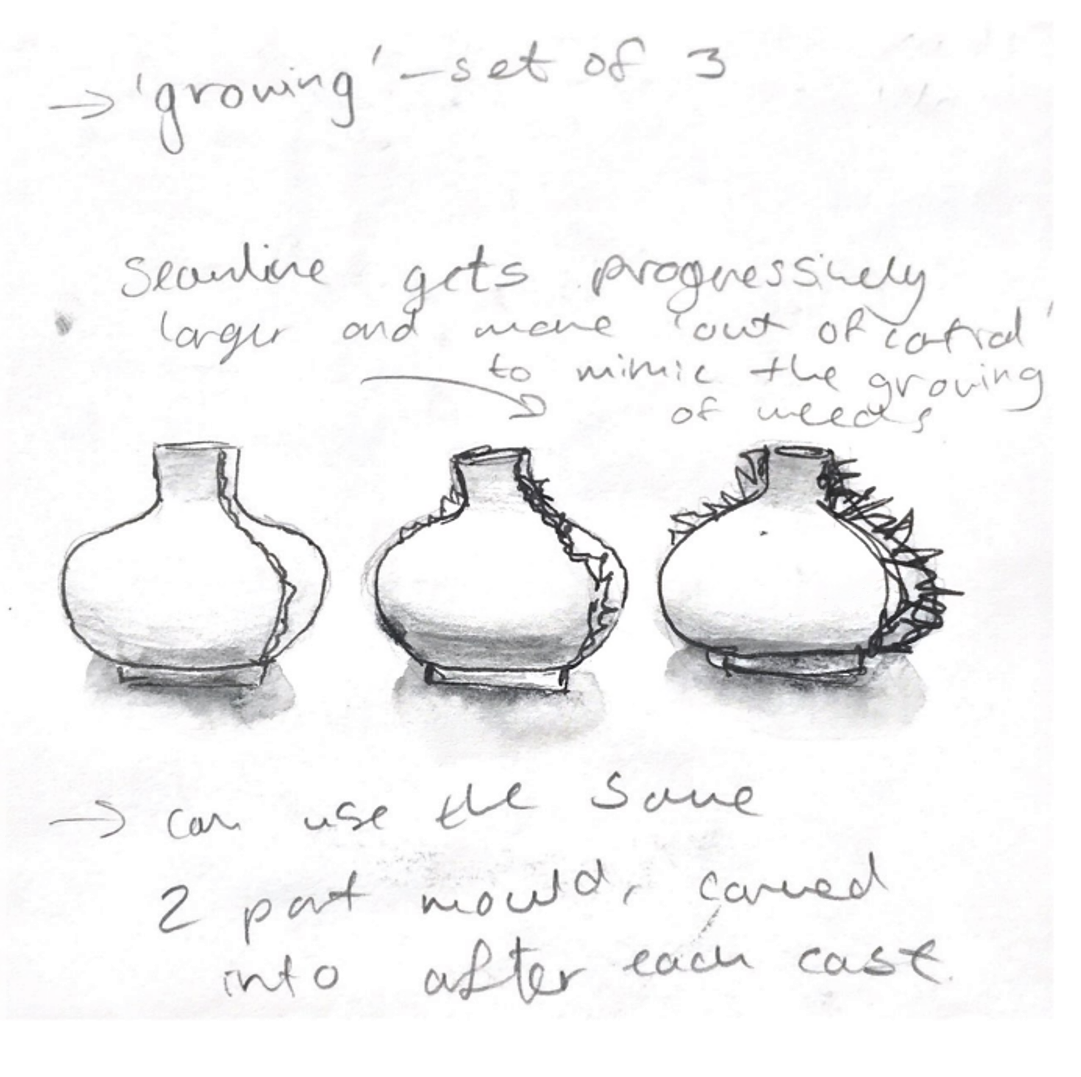 → 'growing' - set of 3
Seamline gets progressively
larger and more 'out of control'
to mimic the growing
of weeds
→ can use the same
2 part mould, carved
into after each cast.